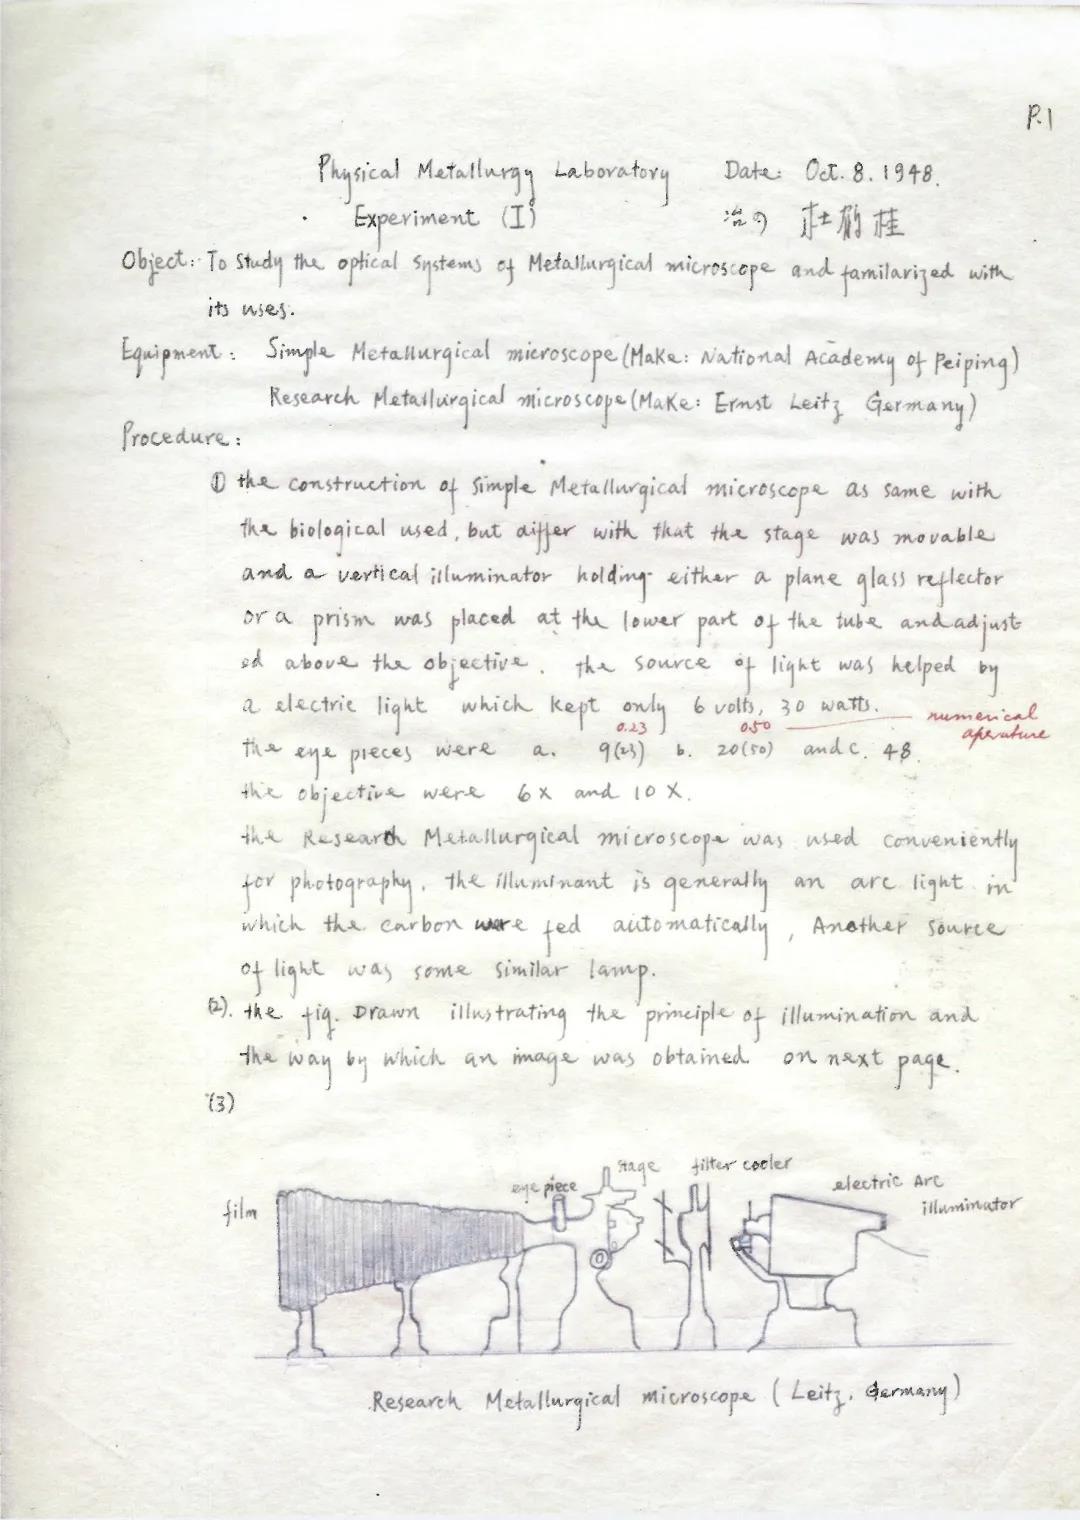 P.1
Physical Metallurgy Laboratory Date: Oct. 8. 1948.
Experiment (I) 冶 杜鹤桂
Object:- To Study the optical systems of Metallurgical microscope and familarized with
its uses.
Equipment: Simple Metallurgical microscope (Make: National Academy of Peiping)
Research Metallurgical microscope (Make: Ernst Leitz Germany)
Procedure:
① the construction of Simple Metallurgical microscope as same with
the biological used, but differ with that the stage was movable
and a vertical illuminator holding either a plane glass reflector
or a prism was placed at the lower part of the tube and adjust
ed above the objective. the source of light was helped by
a electric light which kept only 6 volts, 30 watts.
0.23 0.50 numerical
aperature
the eye pieces were a. 9(23) b. 20(50) and c. 48.
the objective were 6x and 10X.
the Research Metallurgical microscope was used conveniently
for photography, the illuminant is generally an arc light in
which the carbon were fed automatically, Another source
of light was some similar lamp.
(2). the fig. Drawn illustrating the principle of illumination and
the way by which an image was obtained on next page.
(3)
film
eye piece
stage
filter cooler
electric Arc
illuminator
Research Metallurgical microscope (Leitz, Germany)